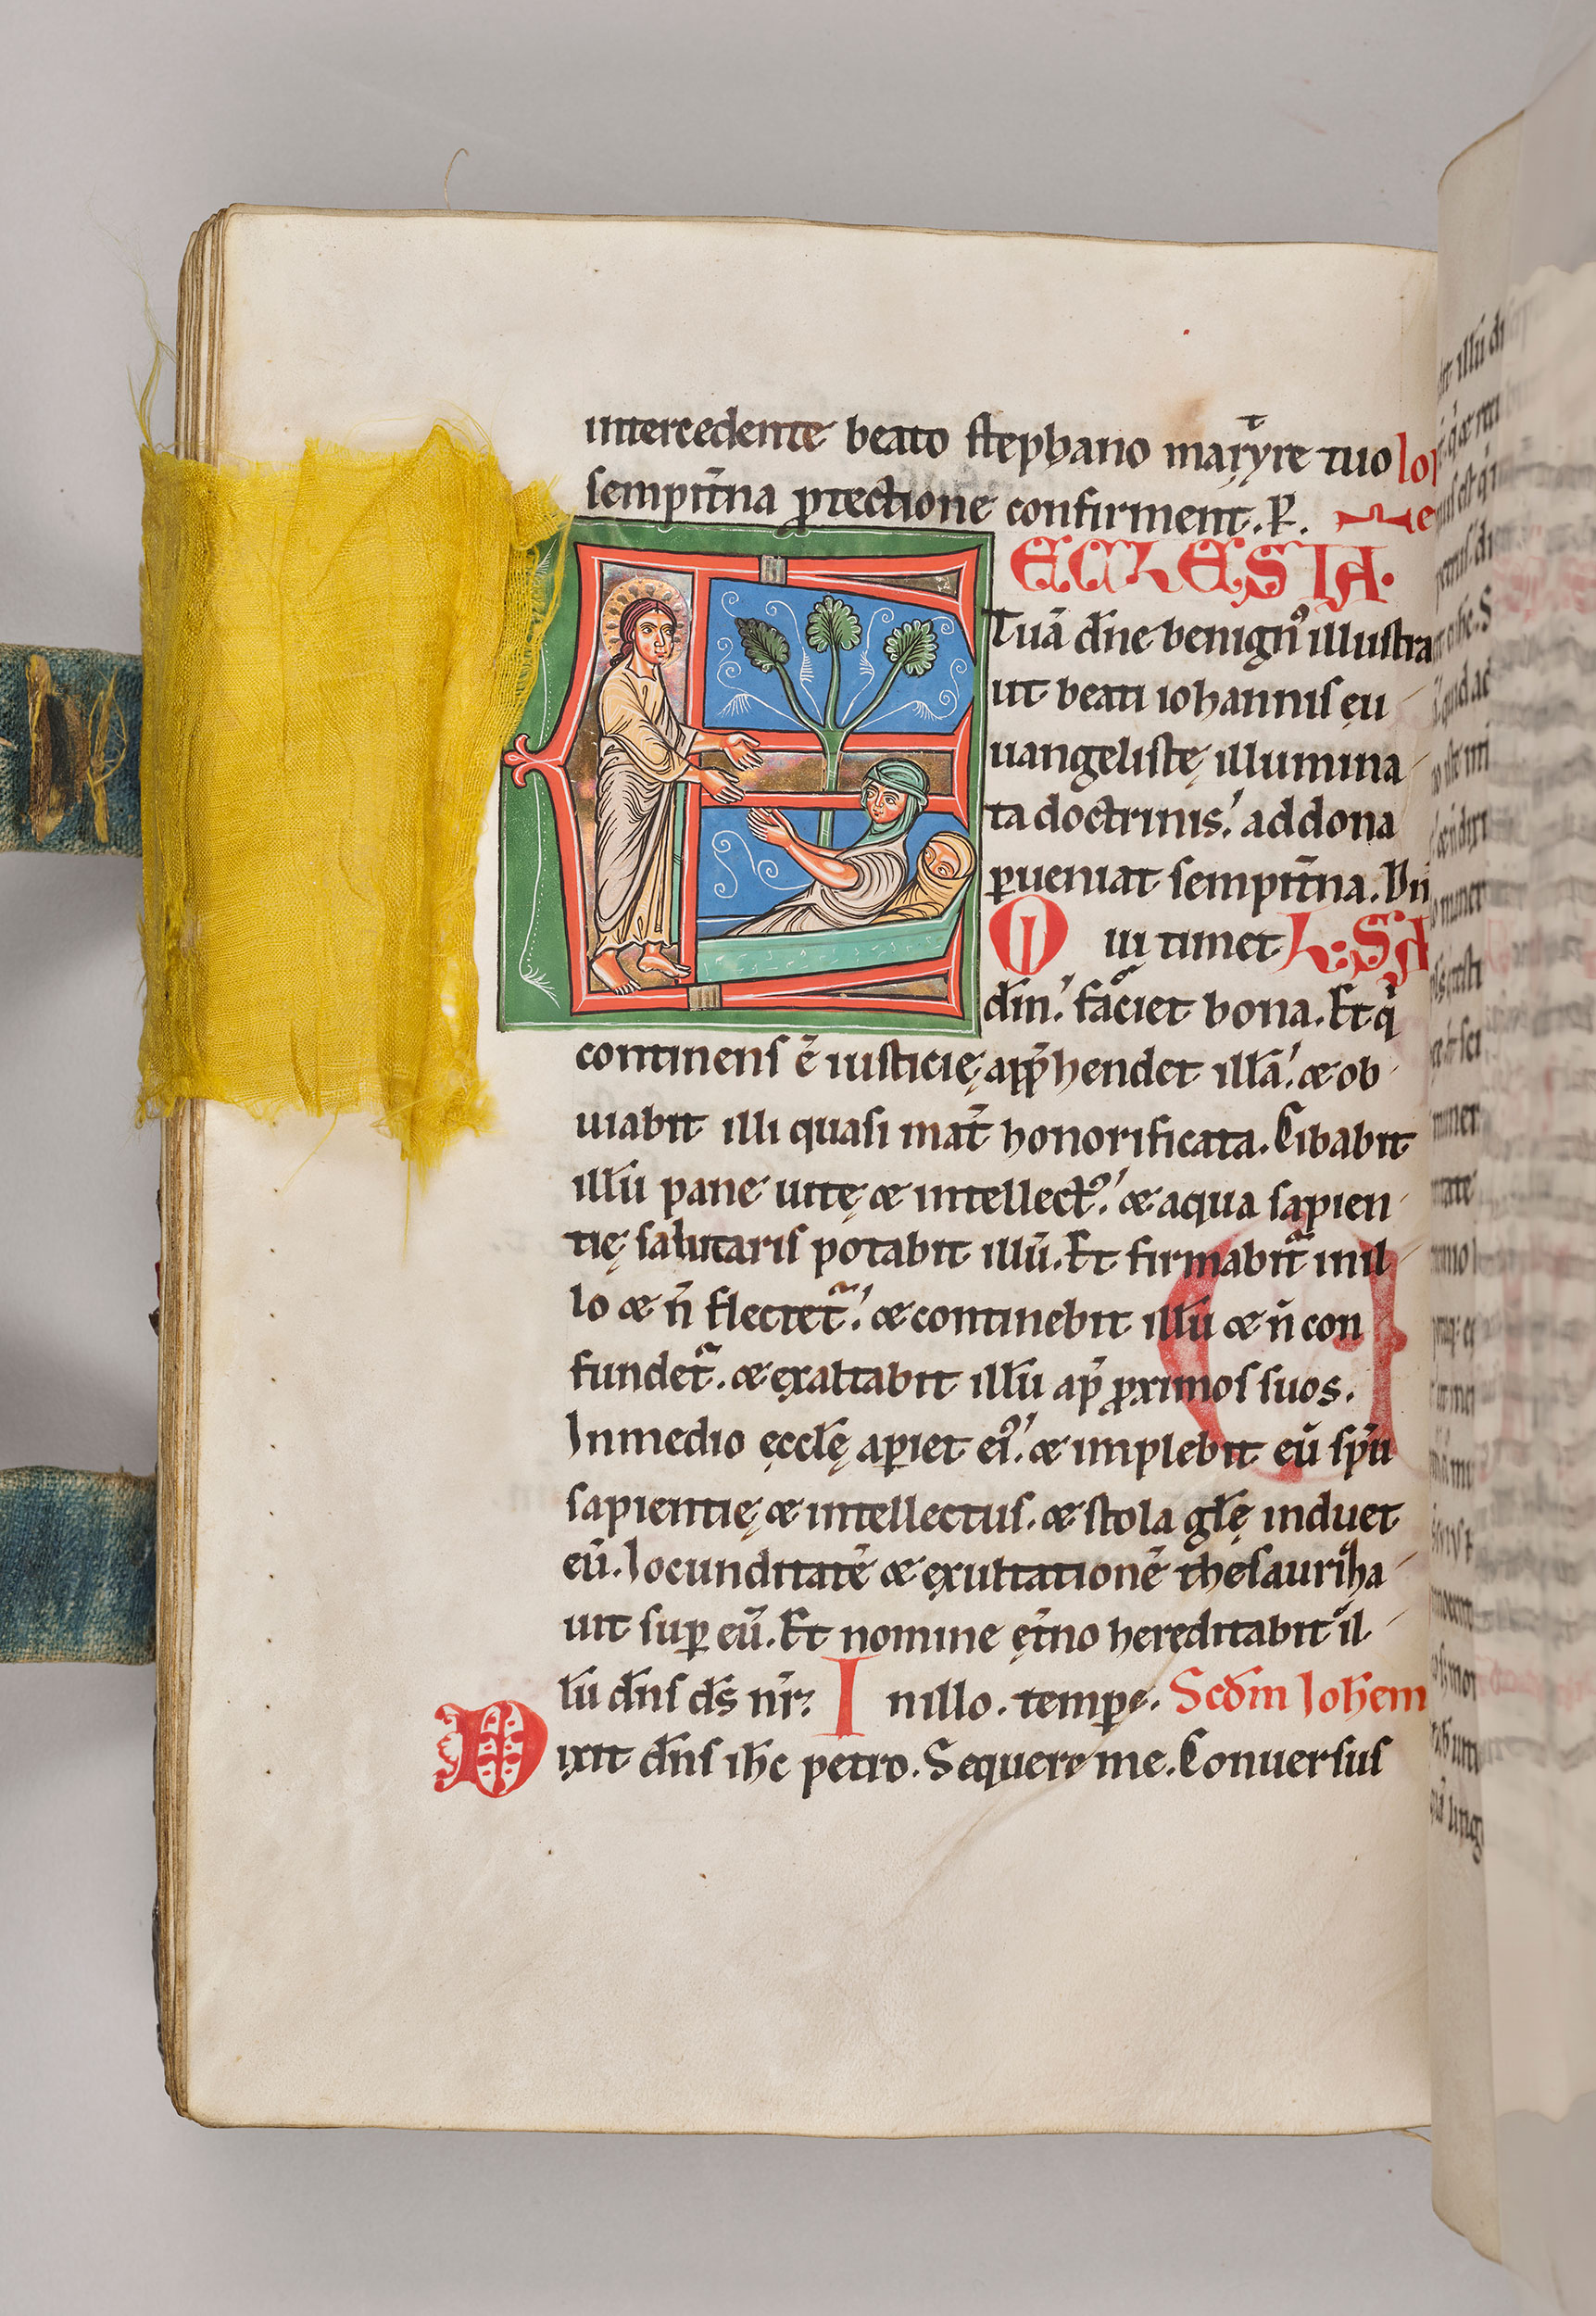 intercedente beato stephano martyre tuo
sempit̄na ꝓtectione confirment. P.
ECCLESIA.
Tuā dn̄e benignꝰ illustra
ut beati iohannis eu
uangelistę illumina
ta doctrinis. ad dona
ꝑueniat sempit̄na.
Qui timet
dm̄. faciet bona. Et q̇
continens ē iusticię app̄hendet illā. & ob
uiabit illi quasi mat̄ honorificata. Cibabit
illū pane uitę & intellectꝰ. & aqua sapien
tię salutaris potabit illū. Et firmabit᷑ in il
lo & n̄ flectet᷑. & continebit illū & n̄ con
fundet᷑. & exaltabit illū ap̄ ꝓximos suos.
In medio ęccłę aꝑiet eiꝰ. & implebit eū spū
sapientię & intellectus. & stola głę induet
eū. Iocunditatē & exultationē thesaurizha
uit suꝑ eū. Et nomine ęt̄no hereditabit il
lū dn̄s ds̄ nr̄. In illo. tempe. Scd̄m Ioh̄em
Dixit dn̄s ih̄c petro. Sequere me. Conuersus